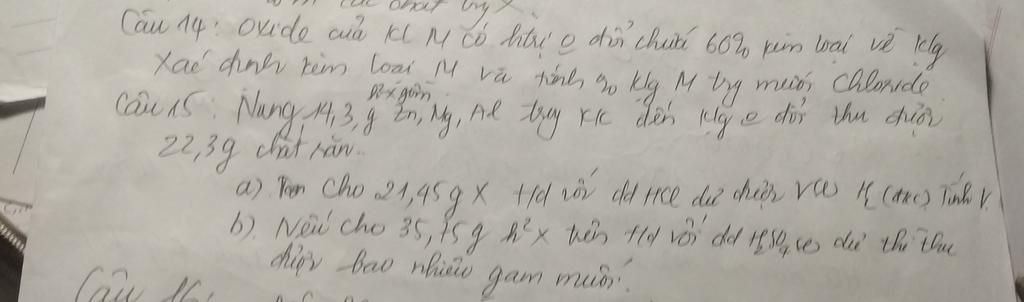 Câu 14: Oxide của KL M có htrị o đổi chứa 60% kim loại về klg
Xác định kim loại M và tính % klg M trg muối Chloride
Câu 15: Nung 14,3 g h² X gồm Zn, Mg, Al trg KK đến klg o đổi thu được
22,3g chất rắn.
a). Cho 21,45g X t/d với dd HCl dư được V (l) H₂ (đkc) Tính V.
b). Nếu cho 35,75g h² X trên t/d với dd H₂SO₄ dư thì thu
được bao nhiêu gam muối?
Câu 16: